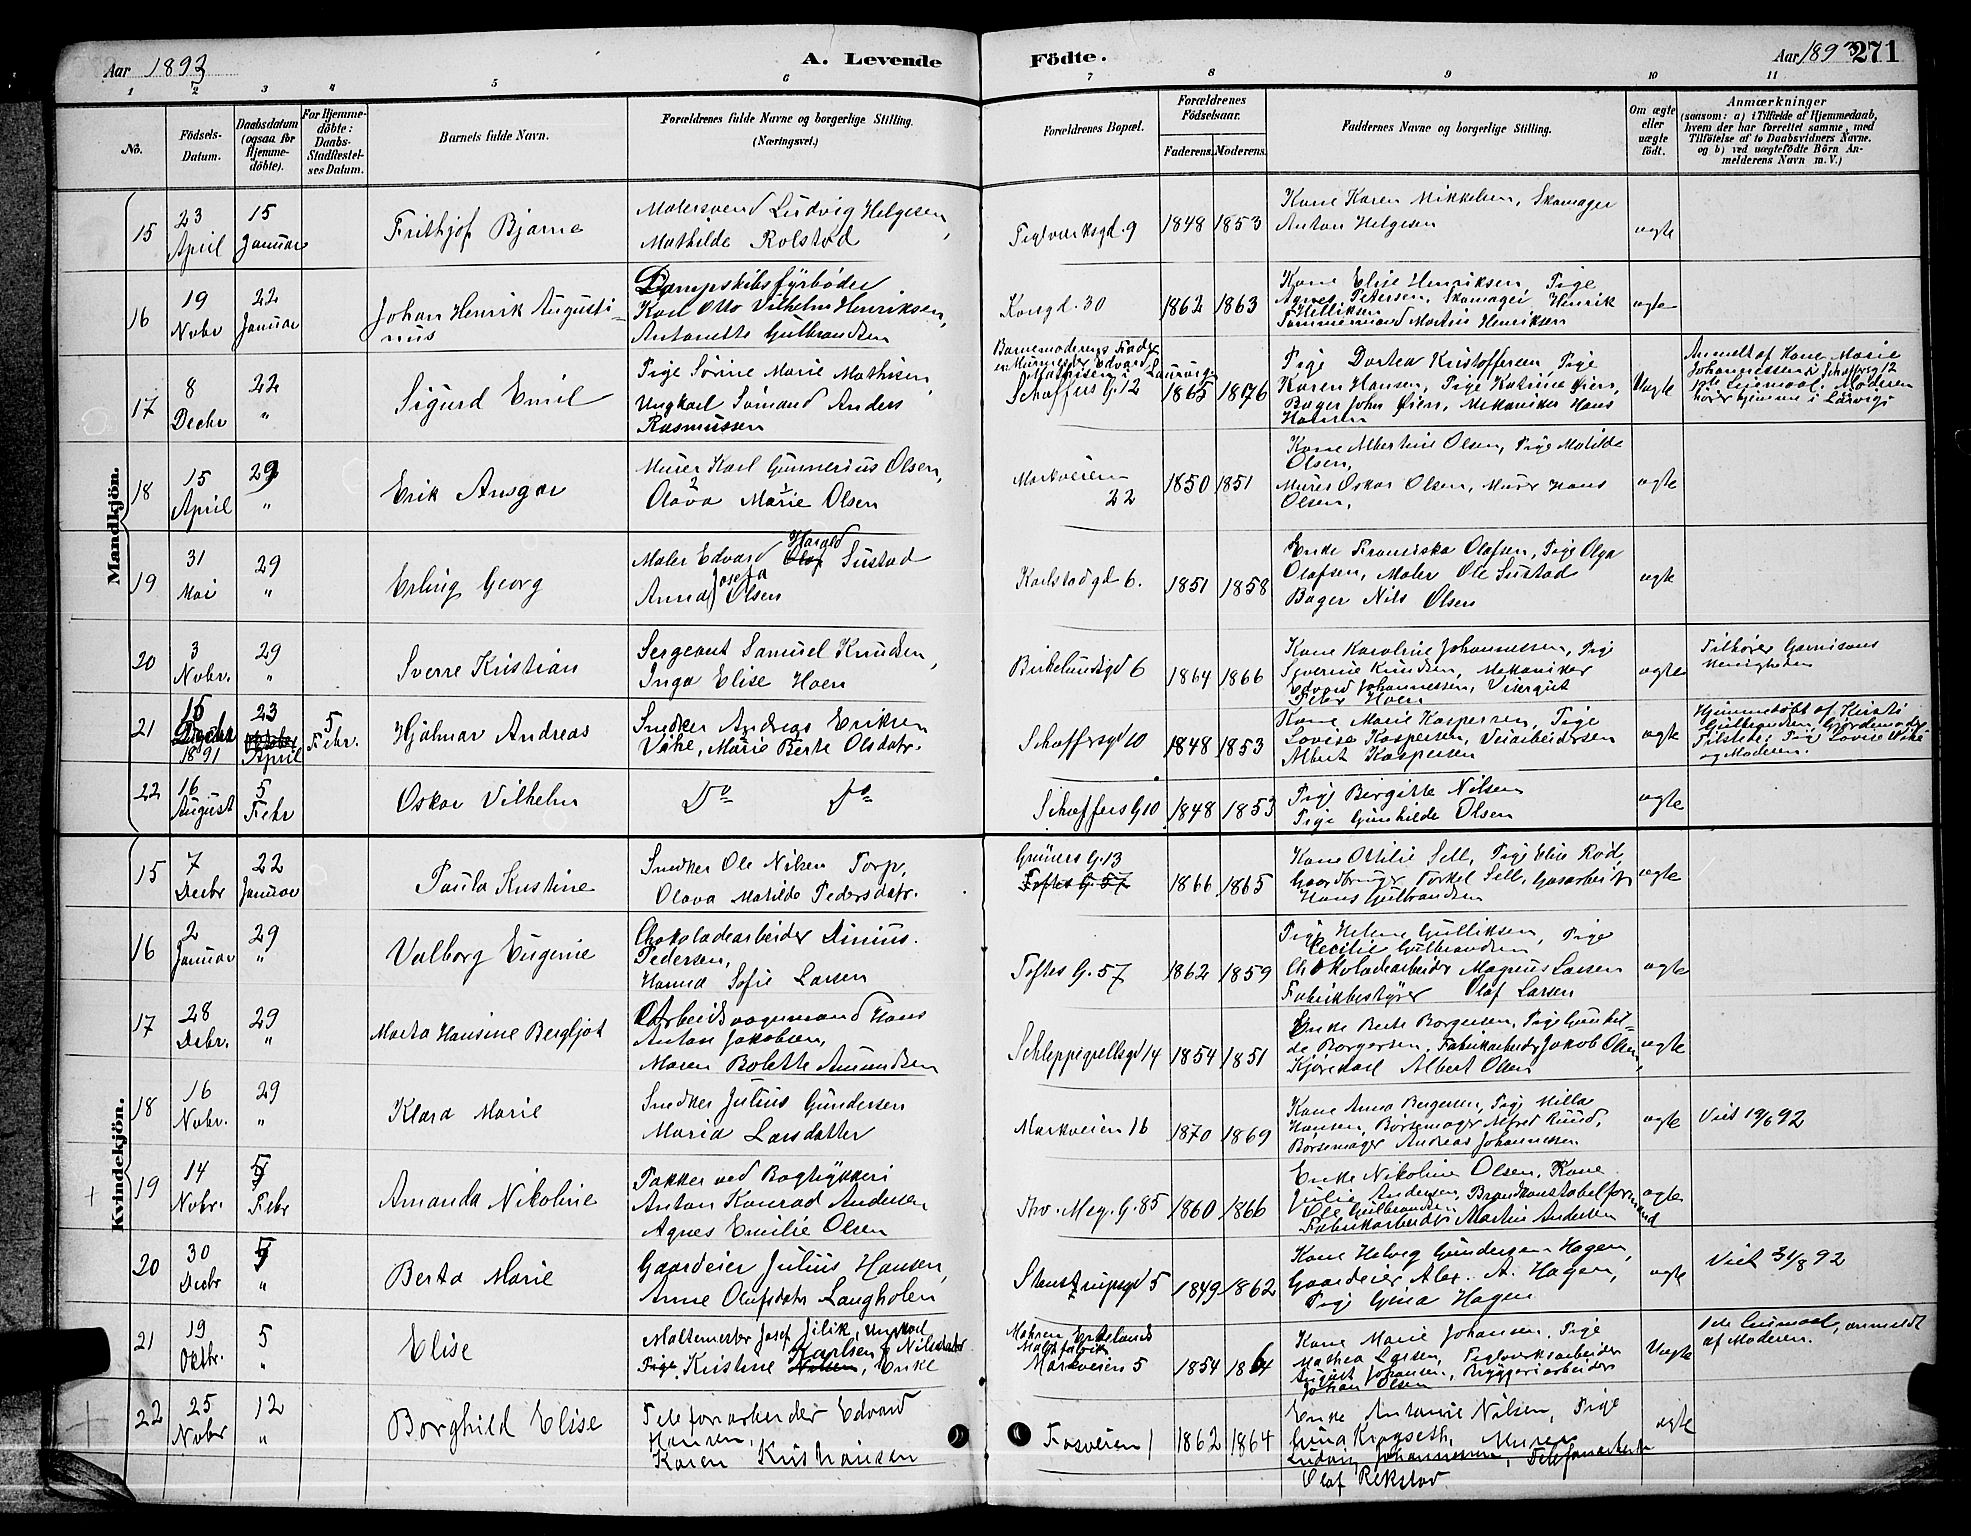 Aar 1893 A. Levende
Födte. Aar 1893 271
1 2 3 4 5 6 7 8 9 10 11
No.
Födsels-
Datum.
Daabsdatum
(ogsaa for
Hjemme-
döbte).
For Hjemme-
döbte:
Daabs-
Stadfestel-
ses Datum.
Barnets fulde Navn.
Forældrenes fulde Navne og borgerlige Stilling.
(Næringsvei.)
Forældrenes Bopæl.
Forældrenes
Födselsaar.
Faderens. Moderens.
Faddernes Navne og borgerlige Stilling.
Om ægte
eller
uægte
födt.
Anmærkninger
(saasom: a) i Tilfælde af Hjemmedaab,
hvem der har forrettet samme, med
Tilföielse af to Daabsvidners Navne.
og b) ved uægtefödte Börn An-
melderens Navn m. V.)
Mandkjön.
15
23
April
15
Januar
Frithjof Bjarne
Malersvend Ludvig Helgesen,
Mathilde Rolstad
Teglværksgd. 9
1848 1853
Kone Karen Mikkelsen, Skomager
Anton Helgesen
ægte
16
19
Nvbr
22
Januar
Johan Henrik Augusti-
nus
Dampskibsfyrböder
Karl Otto Vilhelm Henriksen,
Antonette Gulbrandsen
Korsgd. 30
1862 1863
Kone Elise Henriksen, Pige
Agnes Petersen, Skomager Henrik
Tømmermand Martin Henriksen
ægte
17
8
Decbr
22
"
Sigurd Emil
Pige Sörine Marie Mathisen,
Ungkarl Sömand Anders
Rasmussen
Barnemoderens Fader
er Murmester Edvard
Mathisen i Laurvig
Schæffers G. 12
1865 1876
Pige Dortea Kristoffersen, Pige
Karen Hansen, Pige Katrine Øien,
Bager John Øien, Mekaniker Hans
Hansen
Uægte
Anmeldt af Kone Marie
Johannessen i Schæffersg 12
1ste Leiermaal. Moderen
hörer hjemme i Larvig
18
15
April
29
"
Erik Ansgar
Murer Karl Gunnerius Olsen,
Olava Marie Olsen
Markveien
22
1850 1851
Kone Albertine Olsen, Pige Matilde
Olsen,
Murer Oskar Olsen, Murer Hans
Olsen,
ægte
19
31
Mai
29
"
Erling Georg
Maler Edvard Olaf Harald Sustad
Anna Josefa Olsen
Karlstadgd 6.
1851 1858
Enke Franciska Olafsen, Pige Olga
Olafsen, Maler Ole Sustad
Bager Nils Olsen
ægte
20
3
Nvbr.
29
"
Sverre Kristian
Sergeant Samuel Knudsen,
Inga Elise Hoen
Birkelundsgd 6
1864 1866
Kone Karoline Johannessen, Pige
Severine Knudsen, Mekaniker
Edvard Johannessen, Visergut
Peter Hoen
ægte
Tilhörer Garnisons
Menigheden
21
15
Decbr
1891
23
April
5
Febr.
Hjalmar Andreas
Snedker Andreas Eriksen
Vahe, Marie Berte Olsdatr.
Schæffersgd 10
1848 1853
Kone Marie Kaspersen, Pige
Lovise Kaspersen, Veiarbeidersen
Albert Kaspersen
ægte
Hjemmedöbt af Kirsti
Gulbrandsen, Gjordemoder
Tilstede: Pige Lovise Vahe
og Moderen.
22
16
August
5
Febr
Oskar Vilhelm
Do Do
Schæffers G 10
1848 1853
Pige Birgitte Nilsen
Pige Gunhilde Olsen
ægte
Kvindekjön.
15
7
Decbr
22
Januar
Paula Kristine
Snedker Ole Nilsen Torp,
Olava Matilde Pedersdatr.
Grüners G. 13
Toftes G. 57
1866 1865
Kone Ottilie Sell, Pige Elise Rod,
Gaardbruger Torkel Sell, Gasarbeider
Hans Gulbrandsen
ægte
16
2
Januar
29
"
Valborg Eugenie
Chokoladearbeider Dinius
Pedersen,
Hanna Sofie Larsen
Toftes G. 57
1862 1859
Pige Helene Gulliksen, Pige
Cecilie Gulbrandsen
Chokoladearbeider Magnus Larsen
Fabrikbestyrer Olaf Larsen
ægte
17
28
Decbr.
29
"
Marta Hansine Bergljot
Arbeidsvognmand Hans
Anton Jakobsen,
Maren Bolette Amundsen
Schleppegrellsgd 14
1854 1851
Enke Berte Borgersen, Pige Gunhil-
de Borgersen, Fabrikarbeider Jakob Olsen,
Kjörekarl Albert Olsen
ægte
18
16
Nvbr.
29
"
Klara Marie
Snedker Julius Gundersen
Maria Larsdatter
Markveien 16
1870 1869
Kone Anna Bergersen, Pige Milla
Hansen, Börsemager Alfred Ruud,
Börsemager Andreas Johannessen
ægte
Viet 19/6 92
19
14
Nvbr.
5
Febr
Amanda Nikoline
Pakker ved Bogtrykkeri
Anton Konrad Andersen
Agnes Emilie Olsen
Thv. Mey. G. 85
1860 1866
Enke Nikoline Olsen, Kone
Julie Andersen, Brandkonstabelformand
Ole Gulbrandsen
Fabrikarbeider Martin Andersen
ægte
20
30
Decbr
5
"
Berta Marie
Gaardeier Julius Hansen,
Anne Olufsdatr Langholen
Stenstrupsgd 5
1849 1862
Kone Helvig Gundersen Hagen,
Gaardeier Alex. A. Hagen,
Pige Gina Hagen
ægte
Viet 31/8 92
21
19
Oktbr.
5
"
Elise
Maltemester Josef Jilik, Ungkarl
Pige Kristine Nilsen Karlsen f. Nilsdatr, Enke
Malfabrik
Markveien 5
1854 1864
Kone Marie Johansen, Pige
Mathea Larsen, Teglverksarbeider
August Johansen, Bryggeriarbeider
Johan Olsen
Uægte
1ste Leiermaal, anmeldt
af Moderen.
22
25
Nvbr
12
"
Borghild Elise
Telefonarbeider Edvard
Hansen,
Karen Kristiansen
Fosveien 1
1862 1864
Enke Antonie Nilsen, Pige
Gina Kragseth, Murer
Ludvig Johannessen, Telefonarbeider
Olaf Rekstad
ægte